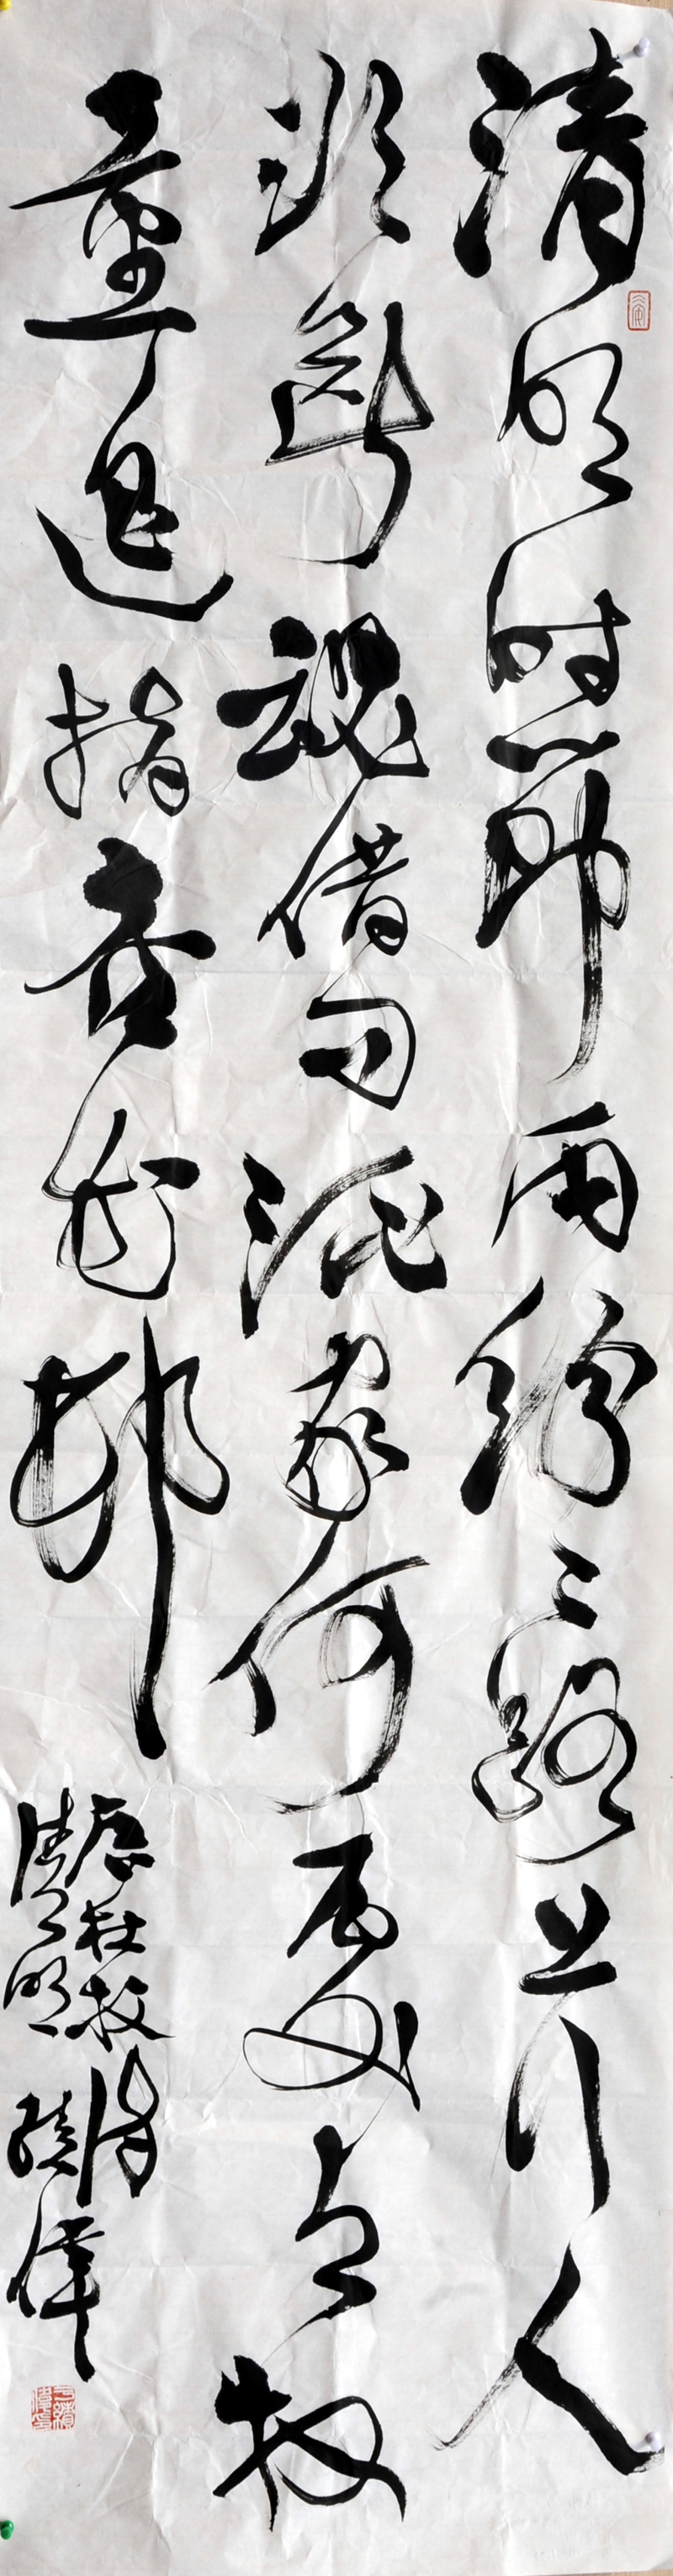 清明时節雨紛々路上行人
欲斷魂借问酒家何处有牧
童遥指杏花邨
唐杜牧诗
清明 績偉